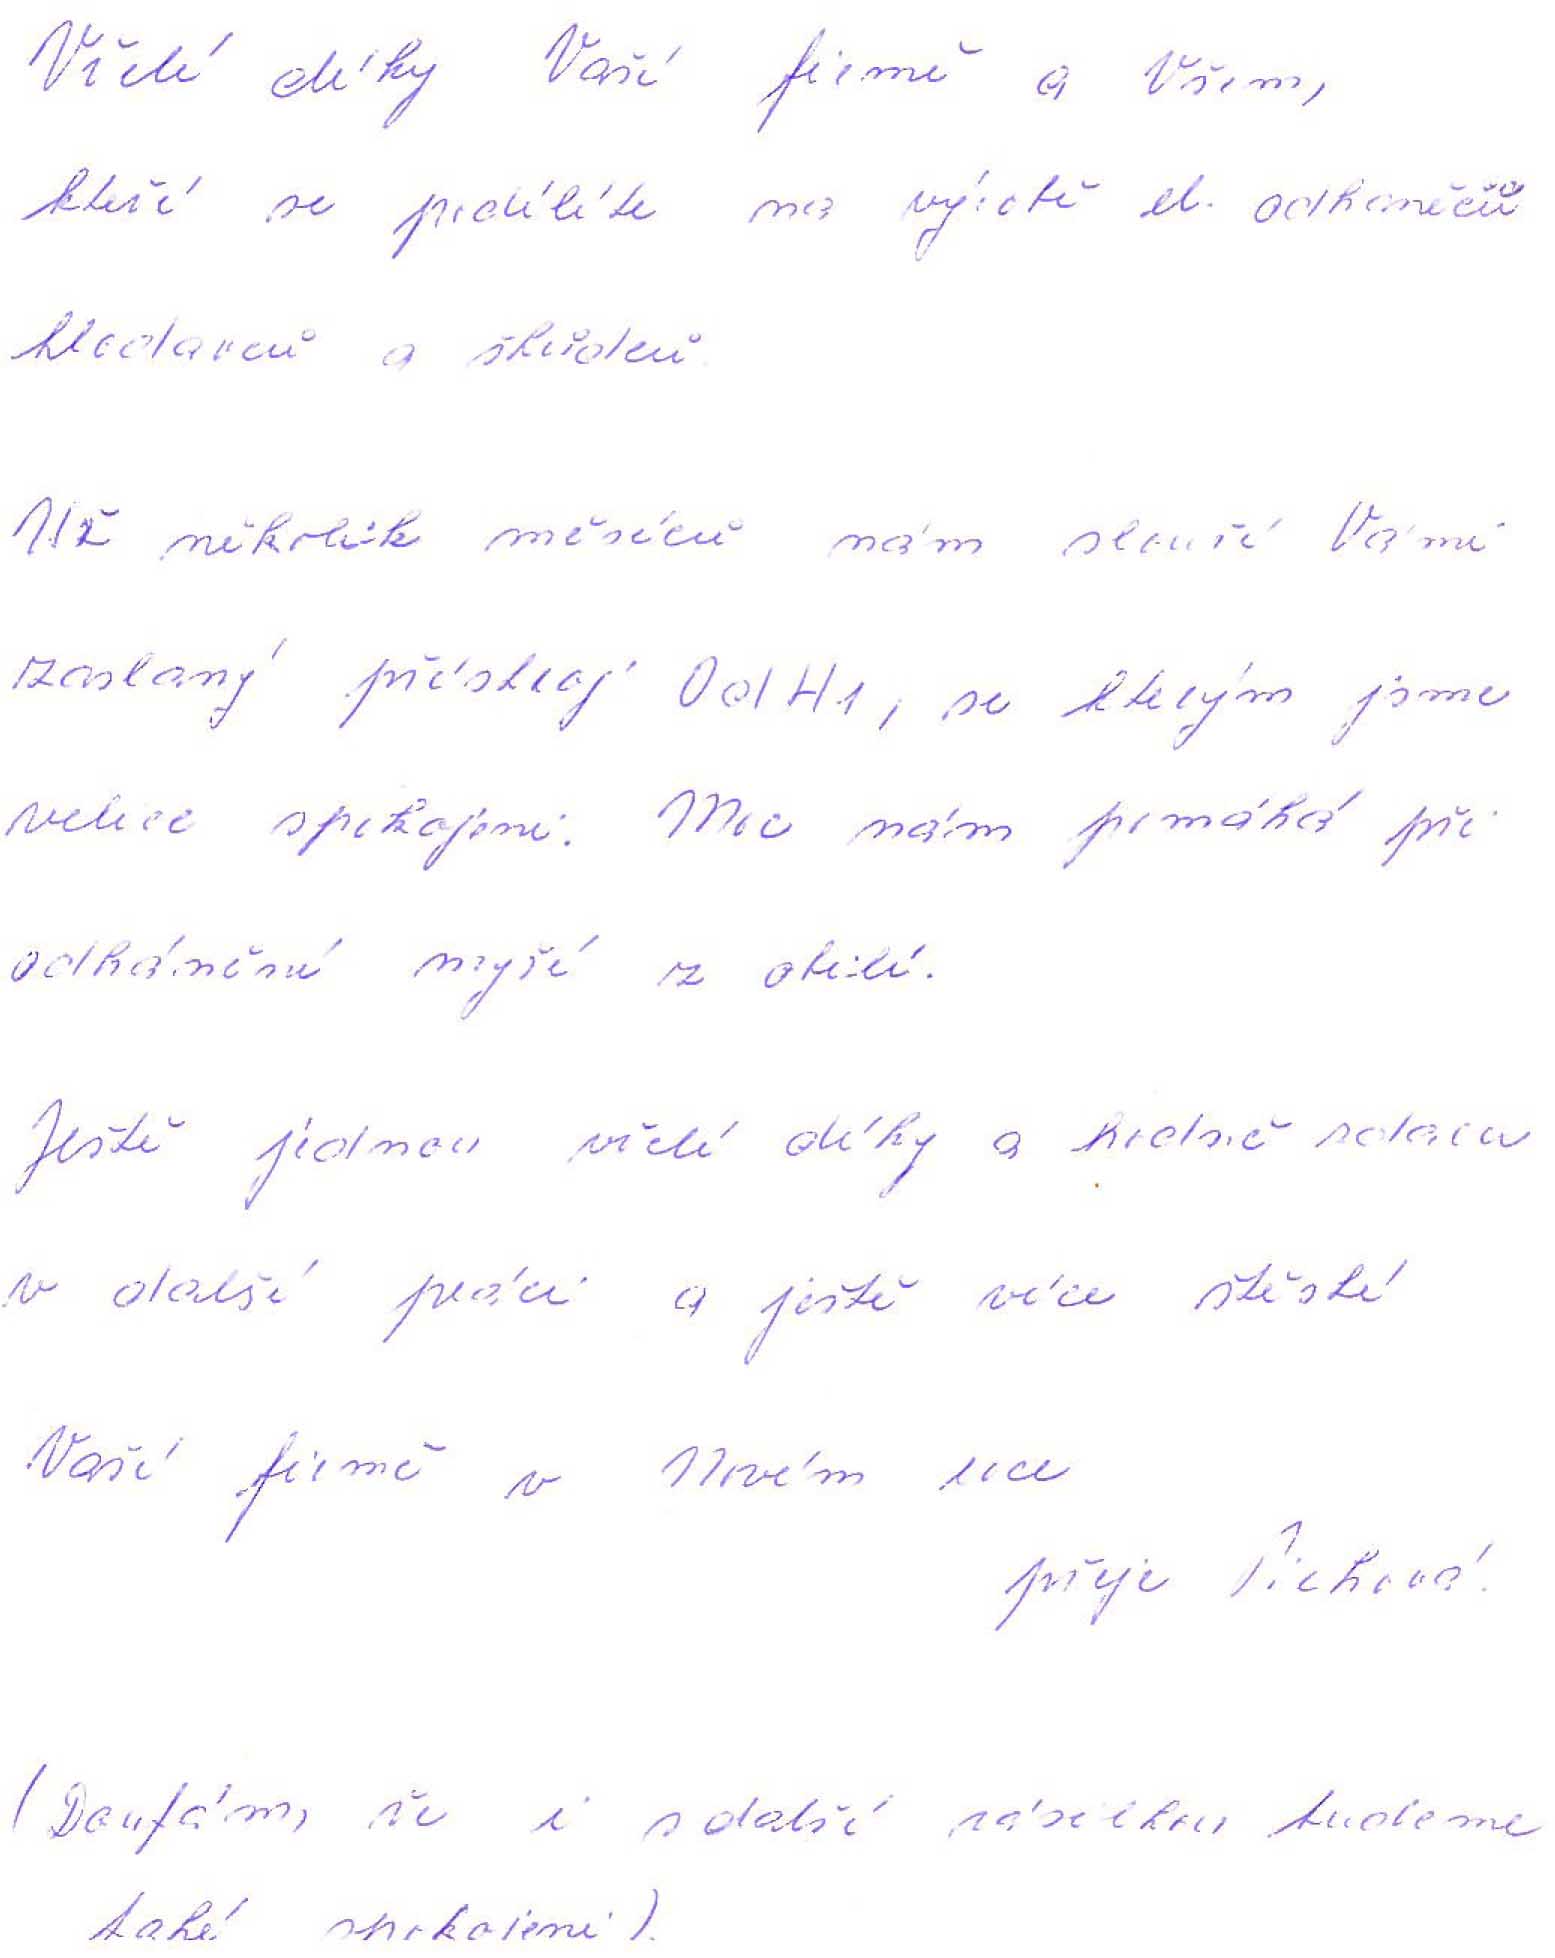 Vřelé díky Vaší firmě a Všem,
kteří se podílíte na výrobě el. odhaněčů
hlodavců a škůdců.
Už několik měsíců nám slouží Vámi
zaslaný přístroj OdH1, se kterým jsme
velice spokojeni. Moc nám pomáhá při
odhánění myší z obilí.
Ještě jednou vřelé díky a hodně zdaru
v další práci a ještě více štěstí
Vaší firmě v Novém roce
přeje Píchová.
(Doufám, že i s další zásilkou budeme
také spokojeni).